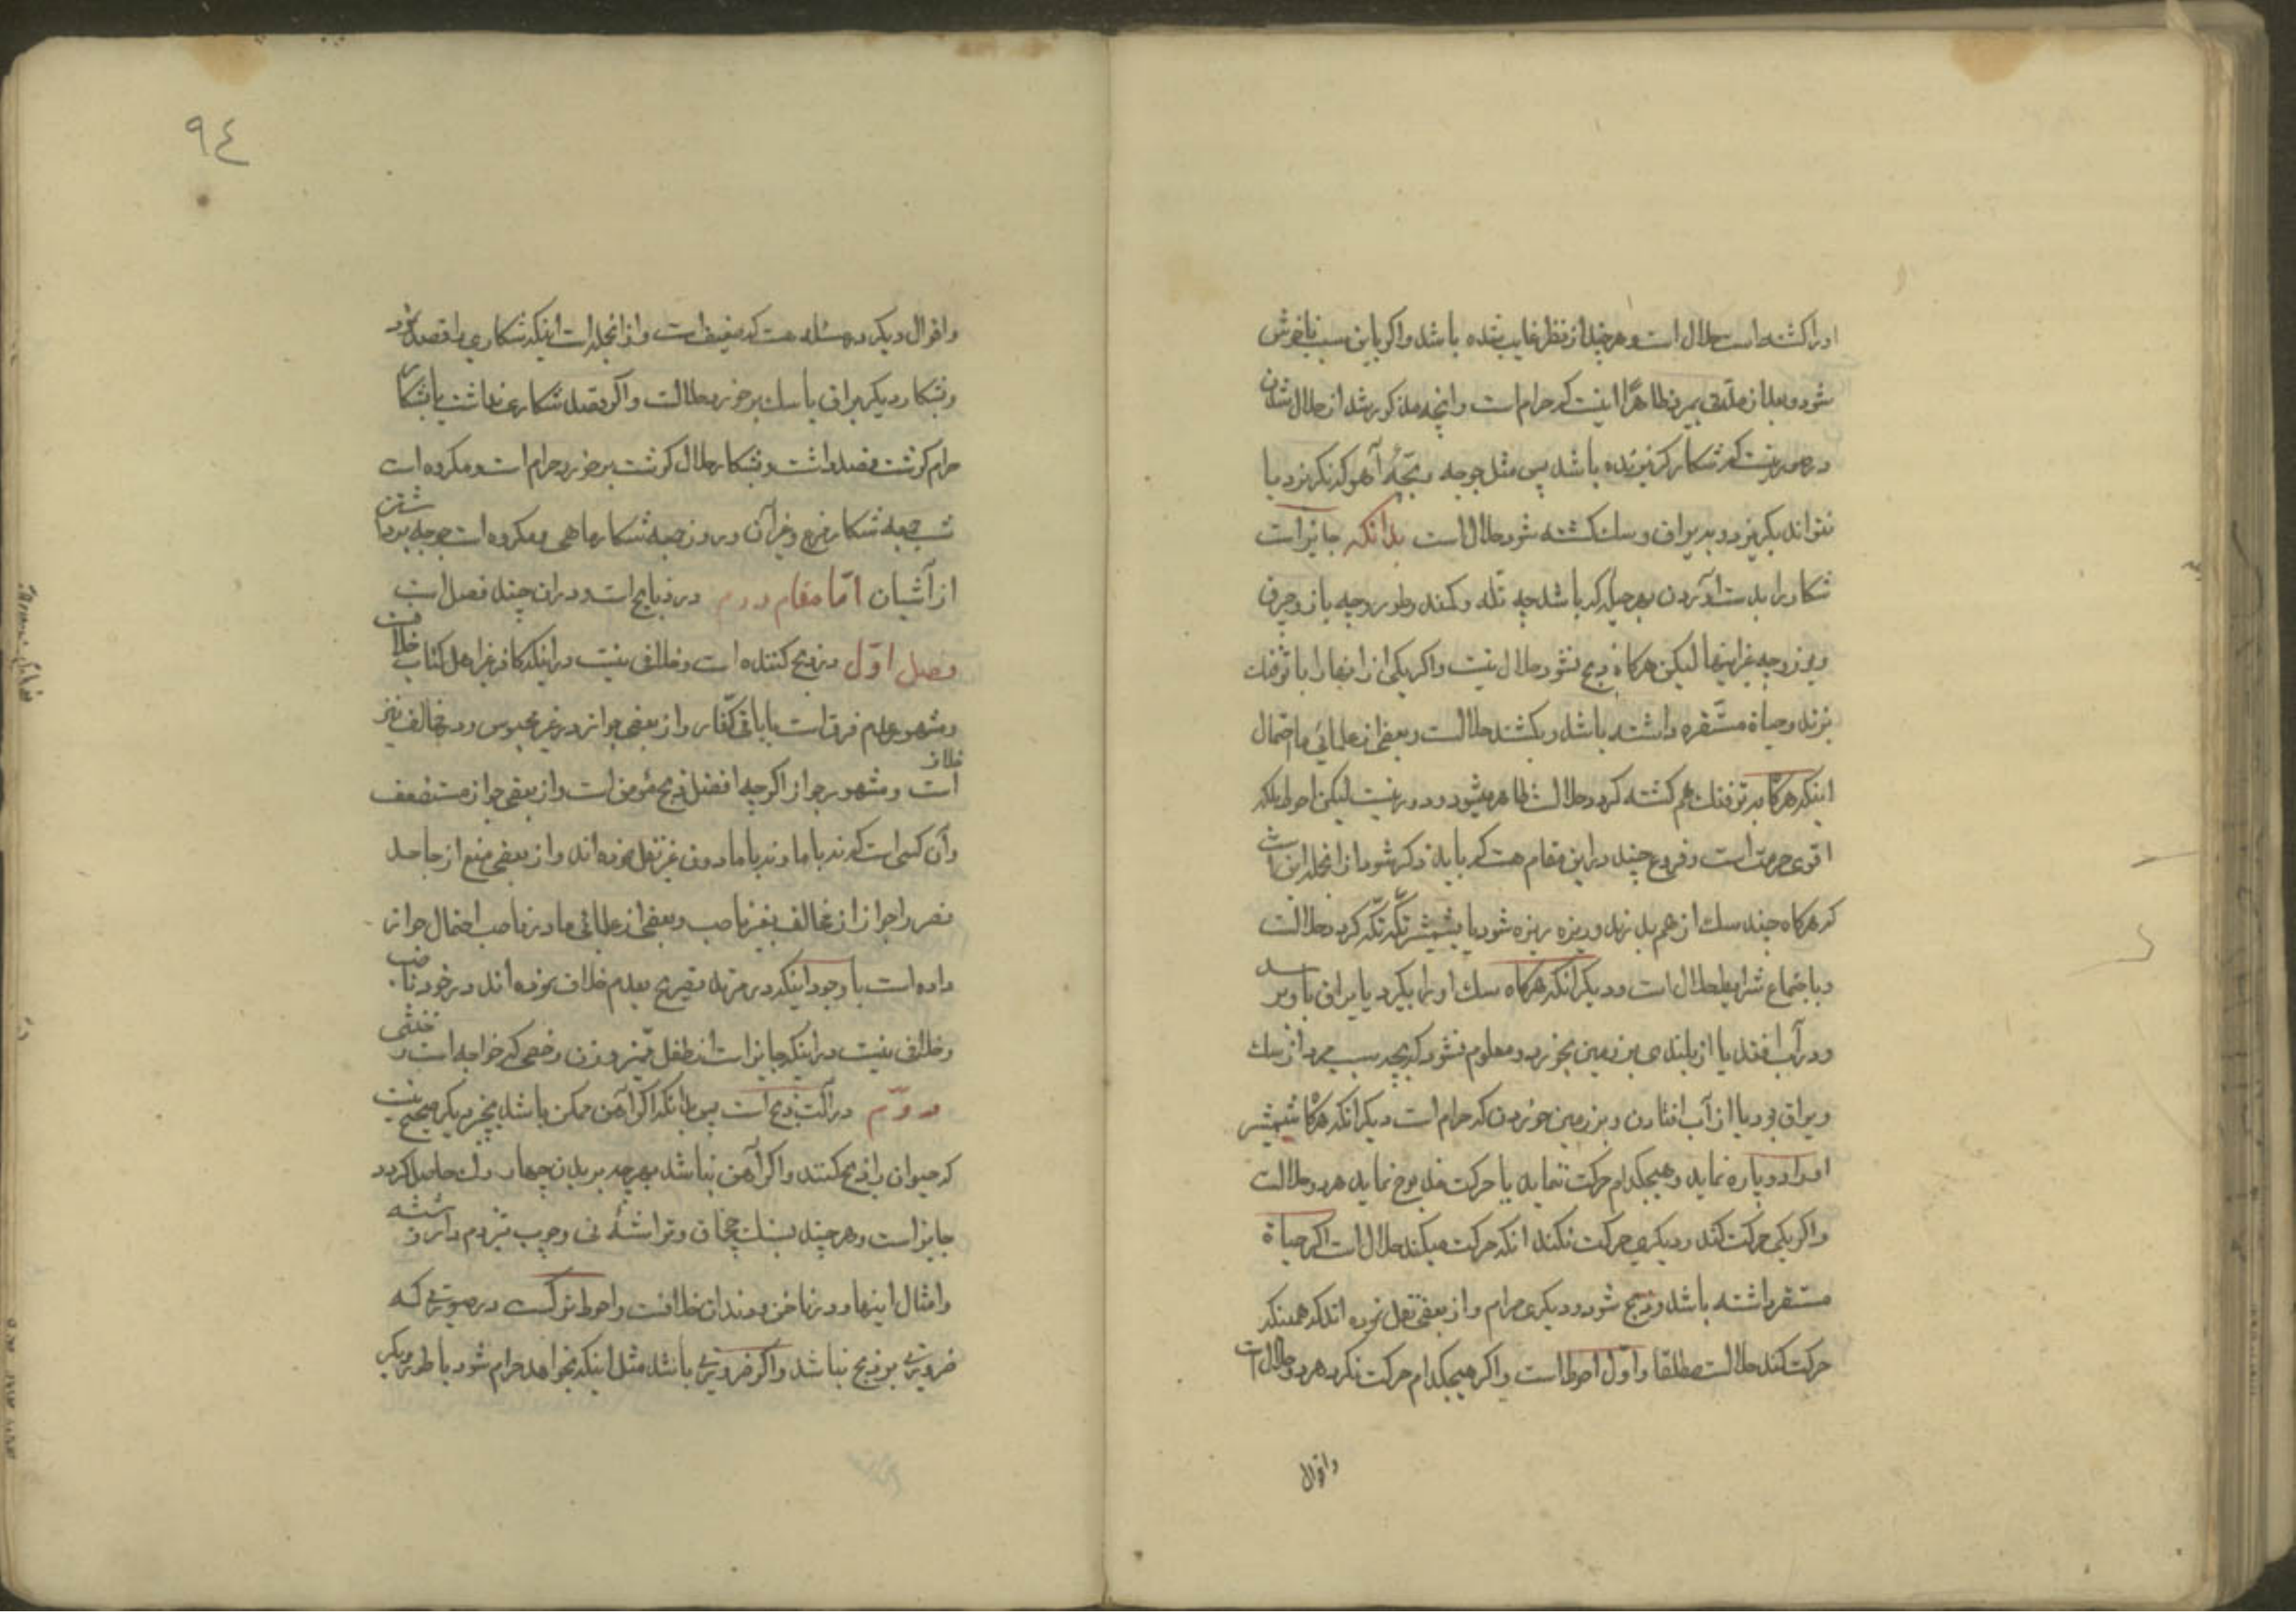 اورا کشته است حلال است و هر چند از نظر غایب شده باشد و اگر باین سبب ناخوش
شود و بعد از مدتی بمیرد ظاهرًا اینست که حرام است و آنچه مذکور شد از حلال شدن
در صورتیست که شکار گریزنده باشد پس مثل جوجه و بچّهٔ آهو که نگریزد یا
نتواند بگریزد و بیراق و سگ کشته شود حلال است بدانکه جایز است
شکار را بدست آوردن بهر حیله که باشد چه تله و کمند و طور و چه باز و چرق
و یوز و چه غیر اینها لیکن هرگاه ذبح نشود حلال نیست و اگر یکی از اینها را با تفنک
بزند و حیاة مستّقره داشته باشد و بکشد حلالست و بعضی از علمائی ما احتمال
اینکه هرگاه بر تفنک هم کشته گردد حلال است ظاهر میشود و دور نیست لیکن احوط بلکه
اقوی حرمت است و فروع چند در این مقام هست که باید ذکر شود از انجمله این است
که هرگاه چند سک از هم بدرند و ریزه ریزه شود یا بشمشیر تکّه تکّه گردد حلالست
و با جتماع شرایط حلال است و دیگر آنکه هرگاه سک او را بگیرد یا یراق باو برسد
و در آب افتد یا از بلندی بر زمین بخورد و معلوم نشود که بچه سبب مرد از سک
و یراق بود یا از آب افتادن و بر زمین خوردن که حرام است دیگر آنکه هرگاه شمشیر
اورا دو پاره نماید و هیچکدام حرکت ننماید یا حرکت مذبوح نماید هر دو حلالست
و اگر یکی حرکت کند و دیگری حرکت نکند آنکه حرکت میکند حلال است اگر حیاة
مستقره داشته باشد و ذبح شود و دیگری حرام و از بعضی نقل نموده اند که همینکه
حرکت کند حلالست مطلقا و اوّل احوط است و اگر هیچکدام حرکت نکرد هر دو حلال است
و اقوال
٩٤
و اقوال دیگر در مسئله هست که ضعیف است و از انجمله است اینکه شکاری را قصد کرد
و بشکار دیگر یراق یا سک برخورد حلالست و اگر قصد شکاری نداشت یا شکار
حرام گوشت قصد داشت و بشکار حلال گوشت برخورد حرام است و مکروه است
شب جمعه شکار مرغ و غیر آن و در روز جمعه شکار ماهی و مکروه است جوجه برداشتن
از آشیان امّا مقام دوم در ذبایح است و در ان چند فصل است
فصل اوّل در ذبح کننده است و خلافی نیست در اینکه کافر غیر اهل کتاب
و مشهور عدم فرق است با باقی کفّار و از بعضی جواز در غیر مجوس و در مخالف نیز خلاف
است و مشهور جواز اگر چه افضل ذبح مؤمن است و از بعضی جواز مستضعف
و آن کسی است که نه با ما و نه با ما دون غیر نقل نموده اند و از بعضی منع از جاحد
نص و اجواز از مخالف بغیر ناصب و بعضی از علمائی ما در ناصب احتمال جواز
داده است با وجود اینکه در مرتد تصریح بعدم خلاف نموده اند در خود ناصب
و خلافی نیست در اینکه جایز است از طفل ممیّز و زن و خصی که خواجه است و خنثی
دوّم در آلت ذبح است پس بدانکه اگر آهن ممکن باشد بچیز دیگر صحیح نیست
که حیوان را ذبح کنند و اگر آهن نباشد بهر چه بریدن چهار رک حاصل گردد
جایز است و هر چند بسنک چخماق و تراشهٔ نی و چوب تیزدم دار و شیشه
و امثال اینها و در ناخن و دندان خلافست و احوط ترکست در صورتی که
ضرورتی بر ذبح نباشد و اگر ضرورتی باشد مثل اینکه بخواهد حرام شود یا طور دیگر